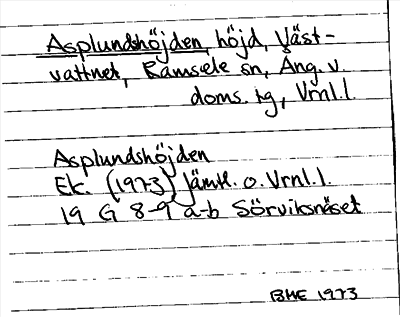 Asplundshöjden, höjd, Väst-
vattnet, Ramsele sn, Ång. v.
doms. tg, Vrnl.l.
Asplundshöjden
Ek. (1973) Jämtl. o. Vrnl.l.
19 G 8-9 a-b Sörviksnäset
BME 1973